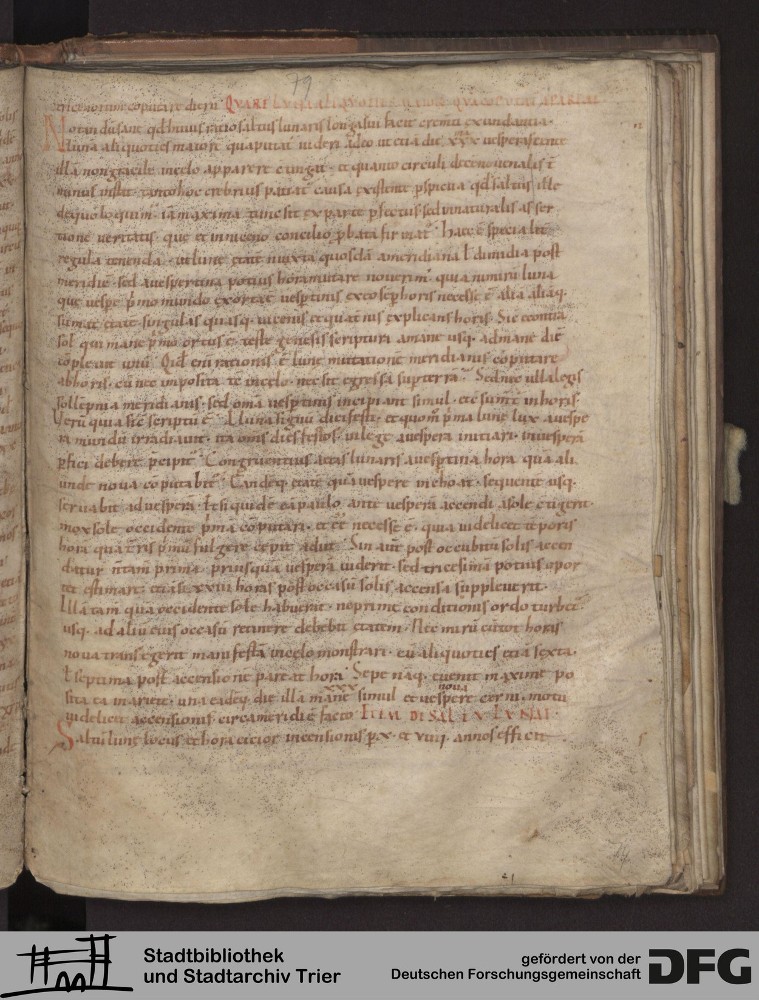 79
tricenorum coputare dieru QVARE LVNA ALIQVOTIENS MAIOR QVA COPVTAT APAREAT
Notandu sane qd huius ratio saltus lunaris longa sui facit crem&i exundantia.
luna aliquoties maiore qua putat uideri. adeo ut cu a die xxx uespera
illa non gracile in celo apparere contingit. et quanto circuli decennouenalis
minus instit. tanto hoc crebrius pateat causa existente pspicua qd saltus ille
de quo loquim. iam maxima tunc sit ex parte pfectus sed una naturalis asser
tione ueritatis. que et in niceno concilio pbata firmat. Hac e specialit
regula tenenda. ut lune etate n iuxta quosda a meridiana l dimidia post
meridie. sed a uespertina potius hora mutare nouerim. quia nimiru luna
que uespe pmo mundo exorta e uesptinis ex eo sep horis necesse e alia aliaq.
sumat etate singulas quasq. uicenis et quatnis explicans horis. Sic econtra
sol qui mane pmo ortus e. teste genesis scriptura a mane usq. ad mane die
coplet unu. Qid eni rationis e lune mutatione meridianis coputare
ab horis. cu nec imposita te in celo. nec sit egressa sup terra. Sed nec ulla legis
sollepnia meridianis. sed oma uesptinis incipiant simul. et sumt in horis.
Veru quia sic scriptu e. A luna signu diei festi. et quom pma lune lux a uespe
ra mundu irradiauit. ita omis dies festos. in lege a uespera initiari. in uespera
pfici debere pcipit. Congruentius aetas lunaris a uesptina hora. qua ali
unde noua coputabit. Eandeq. etate qua uespere inchoat. sequente usq.
seruabit ad uespera. Et si quide ea paulo ante uespera accendi a sole contigerit.
mox sole occidente pma coputari. et ee necesse e. quia uidelicet te poris
hora qua tris pmu fulgere cepit adiit. Sin aut post occubitu solis accen
datur n tam prima. priusqua uespera uiderit. sed tricesima potius opor
tet estimari. etia si xxiii horas post occasu solis accensa suppleuerit.
Illa tam qua occidente sole habuerit. no prime conditionis ordo turbet
usq. ad aliu eius occasu retinere debebit etatem. Nec miru citot horis
noua transegerit manifesta in celo monstrari. cu aliquoties etia sexta.
l septima post accensione pareat hora. Sepe naq. euenit maxime po
sita ta in ariete. una eadeq. die illa mane xxx simul et uespere noua cerni. motu
uidelicet accensionis circa meridie facto. ITEM DE SALTV LVNAE.
Saltu lune locus et hora citior incensionis p x. et viiii. annos efficit
Stadtbibliothek
und Stadtarchiv Trier
gefördert von der
Deutschen Forschungsgemeinschaft
DFG